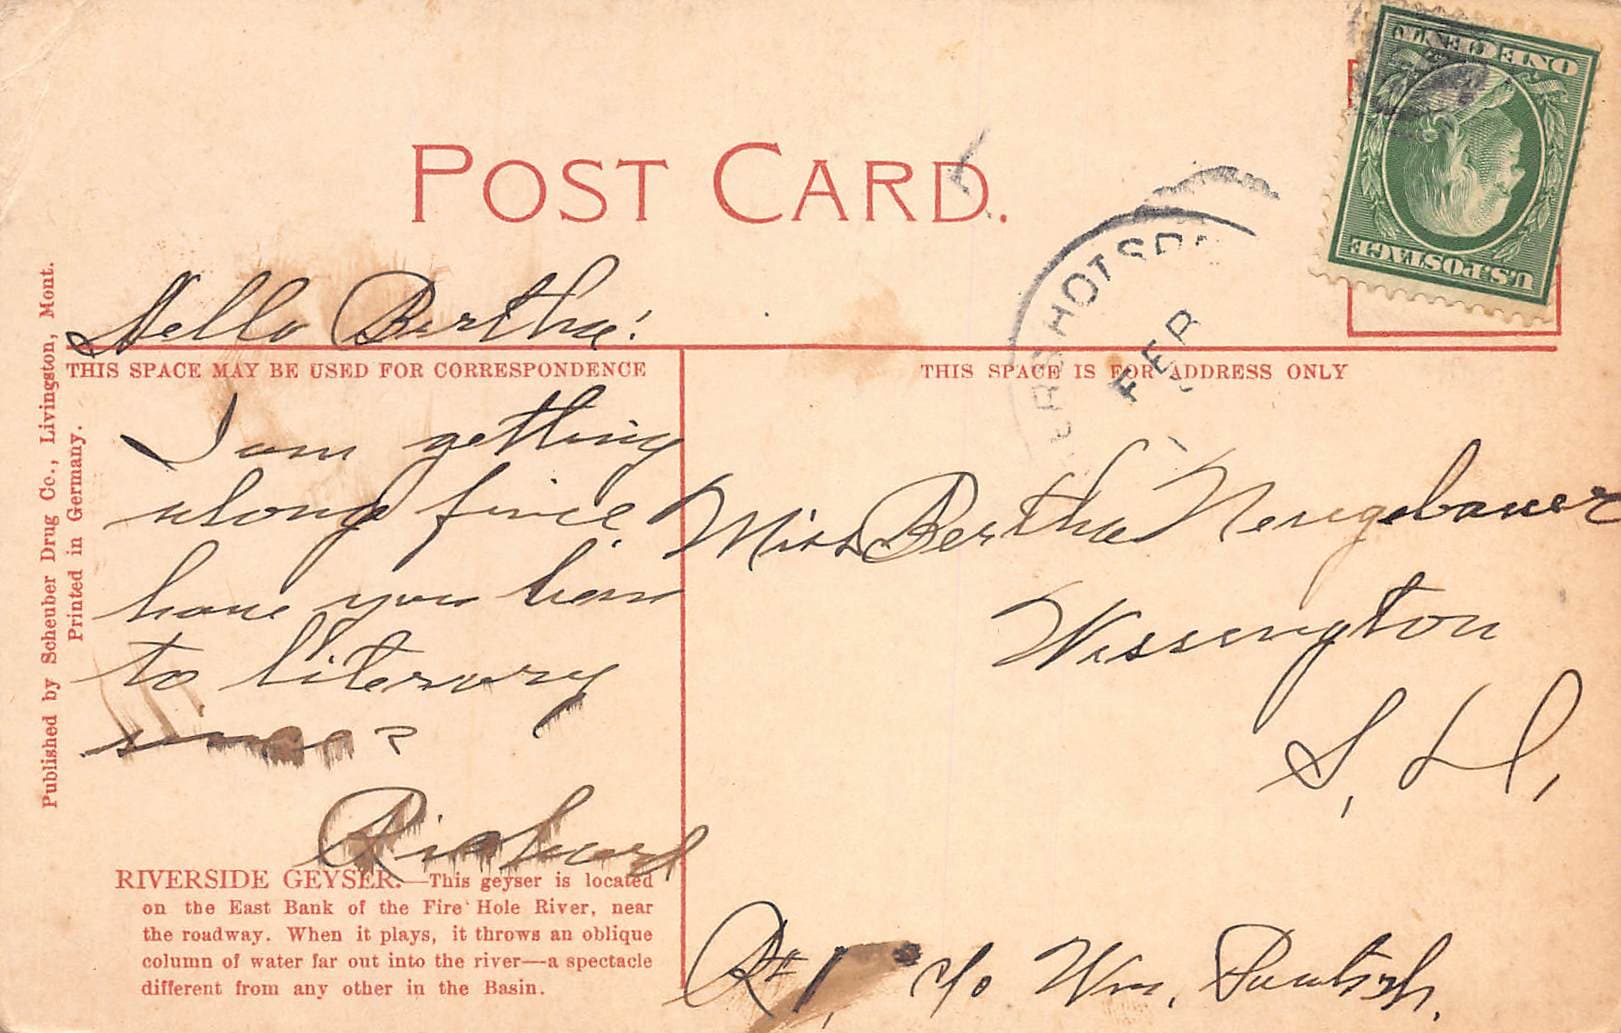 POST CARD.
U.S. POSTAGE
ONE CENT
HOT SPR
FEB
Hello Bertha!
THIS SPACE MAY BE USED FOR CORRESPONDENCE
I am getting
along fine.
have you bein
to literary
since?
Richard
THIS SPACE IS FOR ADDRESS ONLY
Miss Bertha Neugebauer
Wessington
S. D.
Rt 1, c/o Wm.
RIVERSIDE GEYSER.—This geyser is located
on the East Bank of the Fire Hole River, near
the roadway. When it plays, it throws an oblique
column of water far out into the river—a spectacle
different from any other in the Basin.
Published by Scheuber Drug Co., Livingston, Mont.
Printed in Germany.